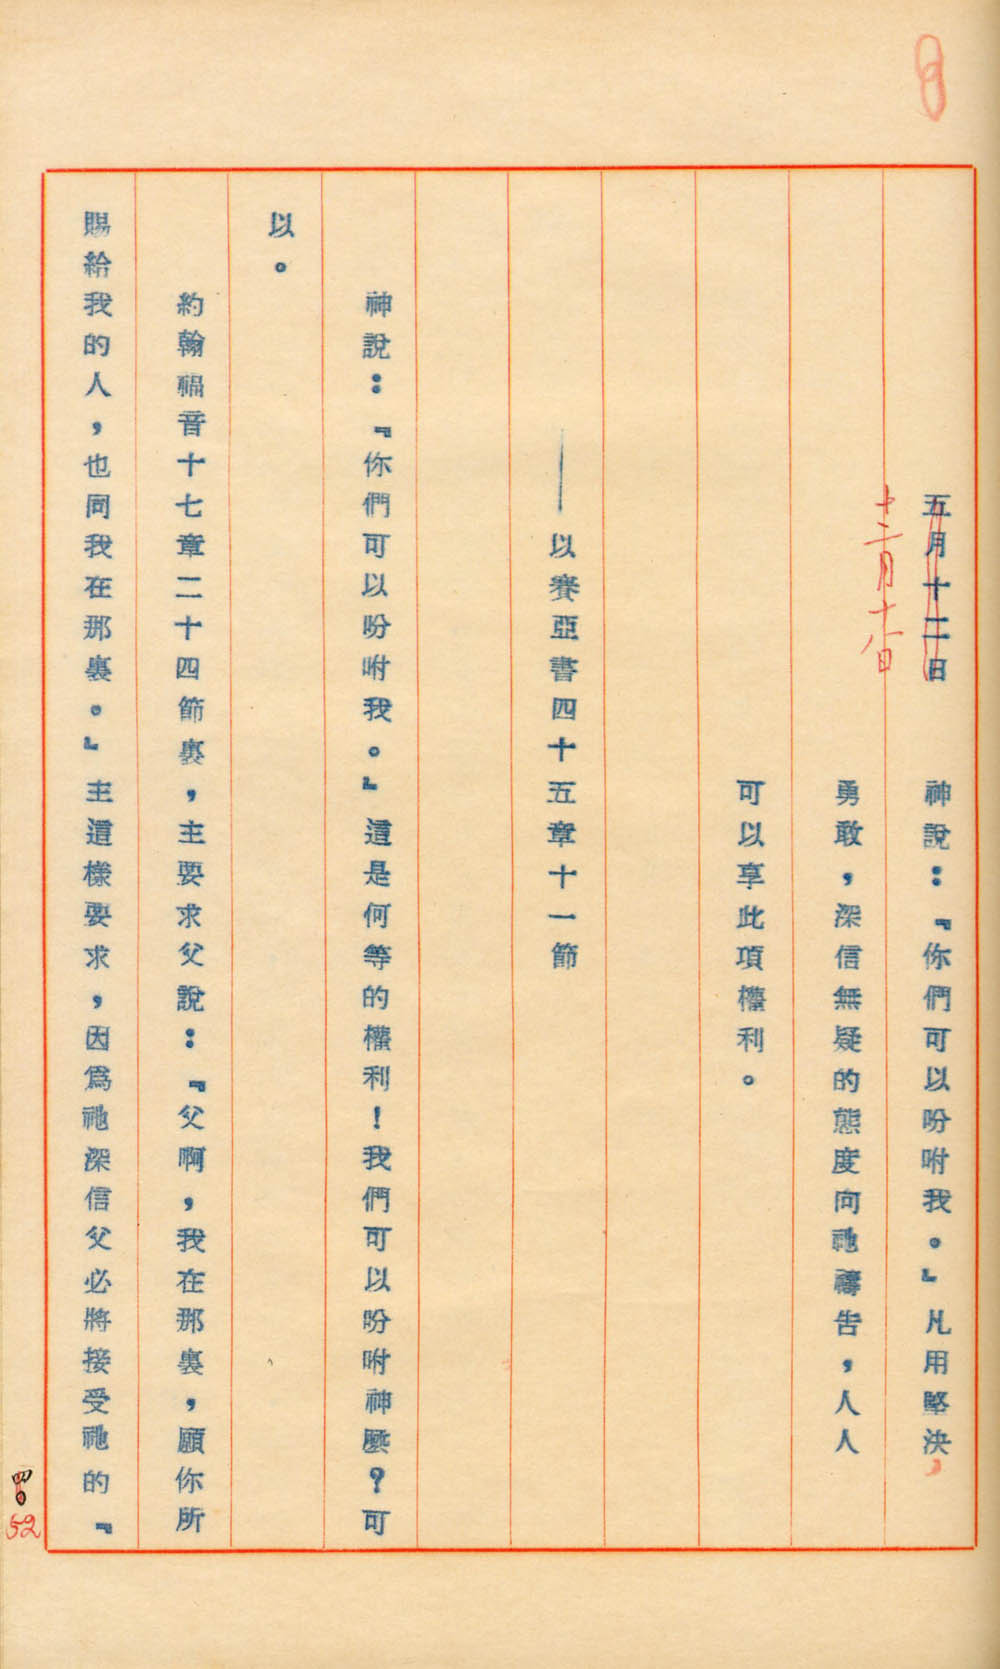 8
五月十二日　神說：『你們可以吩咐我。』凡用堅決，
十二月十八日
勇敢，深信無疑的態度向祂禱告，人人
可以享此項權利。
——以賽亞書四十五章十一節
神說：『你們可以吩咐我。』這是何等的權利！我們可以吩咐神麼？可
以。
約翰福音十七章二十四節裏，主要求父說：『父啊，我在那裏，願你所
賜給我的人，也同我在那裏。』主這樣要求，因爲祂深信父必將接受祂的『
四〇
52